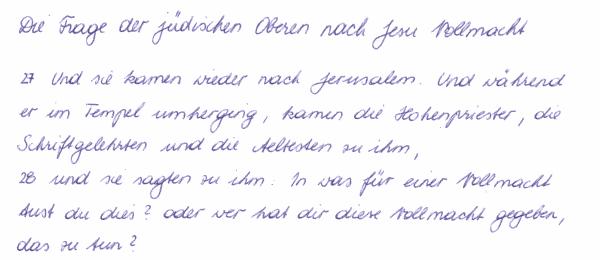 Die Frage der jüdischen Oberen nach Jesu Vollmacht
27 Und sie kamen wieder nach Jerusalem. Und während
er im Tempel umherging, kamen die Hohenpriester, die
Schriftgelehrten und die Aeltesten zu ihm,
28 und sie sagten zu ihm: In was für einer Vollmacht
tust du dies? oder wer hat dir diese Vollmacht gegeben,
das zu tun?